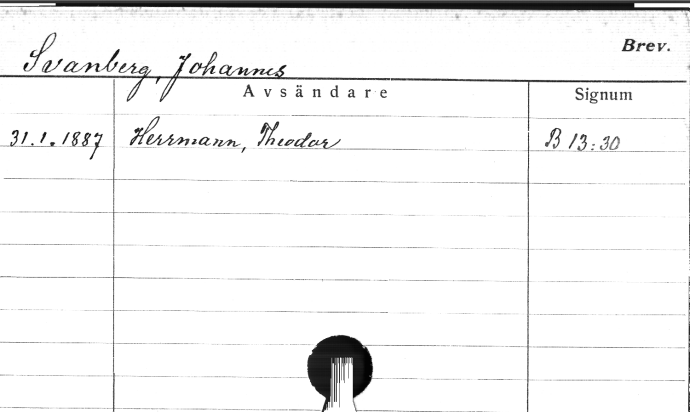 Brev.
Svanberg, Johannes
Avsändare Signum
31.1.1887 Herrmann, Theodor B 13:30